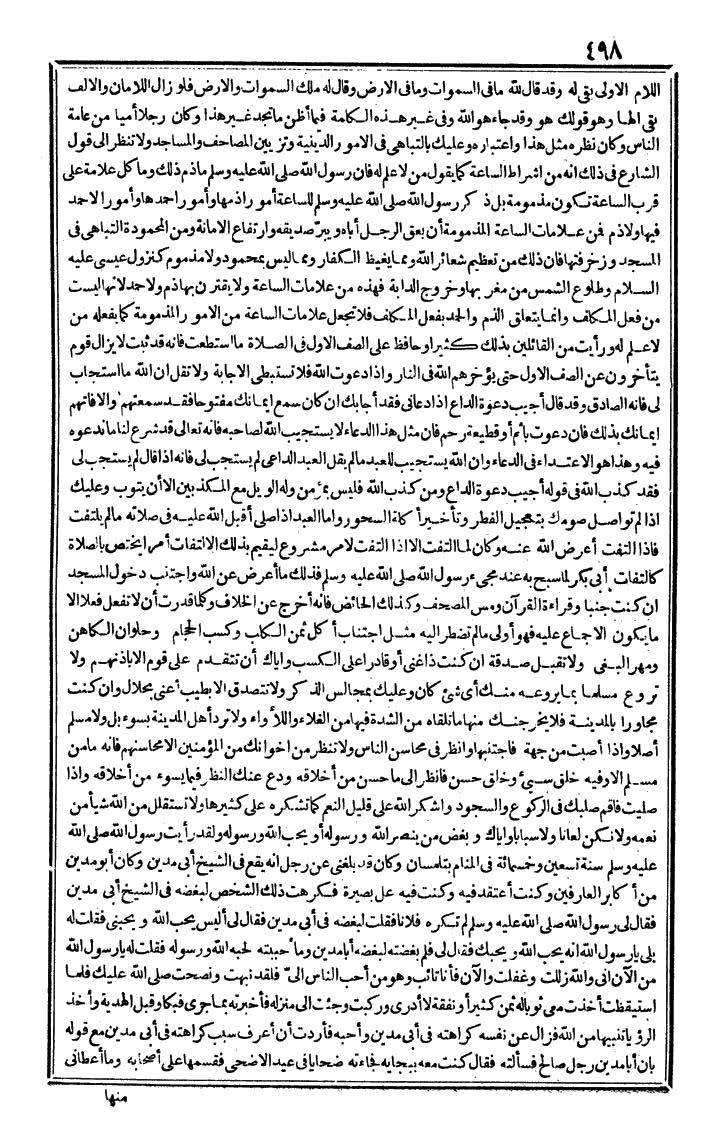 ٤٩٨
اللام الاولى بقى له وقد قال لله ما فى السموات وما فى الارض وقال له ملك السموات والارض فلو زال اللامان والالف
بقى الها وهو قولك هو وقد جاء هو الله وفى غير هذه الكامة فما أظن ما تجد غير هذا وكان رجلا أميا من عامة
الناس وكان نظره مثل هذا واعتباره وعليك بالتباهى فى الامور الدينية وتزيين المصاحف والمساجد ولا تنظر الى قول
الشارع فى ذلك انه من اشراط الساعة كما يقول من لا علم له فان رسول الله صلى الله عليه وسلم ما ذم ذلك وما كل علامة على
قرب الساعة تكون مذمومة بل ذكر رسول الله صلى الله عليه وسلم للساعة أمورا ذمها وأمورا حمدها وأمورا لا حمد
فيها ولا ذم فمن علامات الساعة المذمومة أن يعق الرجل أباه ويبرّ صديقه وارتفاع الامانة ومن المحمودة التباهى فى
المسجد وزخرفتها فان ذلك من تعظيم شعائر الله ومما يغيظ الكفار ومما ليس بمحمود ولا مذموم كنزول عيسى عليه
السلام وطلوع الشمس من مغربها وخروج الدابة فهذه من علامات الساعة ولا يقترن بها ذم ولا حمد لانها ليست
من فعل المكلف وانما يتعلق الذم والحمد بفعل المكلف فلا تجعل علامات الساعة من الامور المذمومة كما يفعله من
لا علم له ورأيت من القائلين بذلك كثيرا وحافظ على الصف الاول فى الصلاة ما استطعت فانه قد ثبت لا يزال قوم
يتأخرون عن الصف الاول حتى يؤخرهم الله فى النار واذا دعوت الله فلا تستبطئ الاجابة ولا تقل ان الله ما استجاب
لى فانه الصادق وقد قال أجيب دعوة الداع اذا دعانى فقد أجابك ان كان سمع ايمانك مفتوحا فقد سمعتهم والافاتهم
ايمانك بذلك فان دعوت باثم أو قطيعة رحم فان مثل هذا الدعاء لا يستجيب الله لصاحبه فانه تعالى قد شرع لنا ما ندعوه
فيه وهذا هو الاعتداء فى الدعاء وان الله يستجيب للعبد ما لم يقل العبد الداعى لم يستجب لى فانه اذا قال لم يستجب لى
فقد كذب الله فى قوله أجيب دعوة الداع ومن كذب الله فليس بمؤمن وله الويل مع المكذبين الا أن يتوب وعليك
اذا لم تواصل صومك بتعجيل الفطر وتأخير أكلة السحور واما العبد اذا صلى أقبل الله عليه فى صلاته ما لم يلتفت
فاذا التفت أعرض الله عنه وكان لما التفت الا اذا التفت لامر مشروع ليقيم بذلك الالتفات أمرا يختص بالصلاة
كالتفات أبى بكر لما سبح به عند مجىء رسول الله صلى الله عليه وسلم فذلك ما أعرض عن الله واجتنب دخول المسجد
ان كنت جنبا وقراءة القرآن ومس المصحف وكذلك الحائض فانه أخرج عن الخلاف وكلما قدرت أن لا تفعل فعلا الا
ما يكون الاجماع عليه فهو أولى ما لم تضطر اليه مثل اجتناب أكل ثمن الكلب وكسب الحجام وحلوان الكاهن
ومهر البغى ولا تقبل صدقة ان كنت ذا غنى أو قادرا على الكسب واياك أن تتقدم على قوم الا باذنهم ولا
تروع مسلما بما يروعه منك أى شئ كان وعليك بمجالس الذكر ولا تتصدق الا بطيب أعنى بحلال وان كنت
مجاورا بالمدينة فلا يخرجنك منها ما تلقاه من الشدة فيها من الغلاء واللأواء ولا ترد أهل المدينة بسوء بل ولا مسلم
أصلا واذا أصبت من جهة فاجتنبها وانظر فى محاسن الناس ولا تنظر من اخوانك من المؤمنين الا محاسنهم فانه ما من
مسلم الا وفيه خلق سيئ وخلق حسن فانظر الى ما حسن من أخلاقه ودع عنك النظر فيما يسوء من أخلاقه واذا
صليت فاقم صلبك فى الركوع والسجود واشكر الله على قليل النعم كما تشكره على كثيرها ولا تستقلل من الله شيأ من
نعمه ولا تكن لعانا ولا سبابا واياك وبغض من ينصر الله ورسوله أو يحب الله ورسوله ولقد رأيت رسول الله صلى الله
عليه وسلم سنة تسعين وخمسمائة فى المنام بتلمسان وكان قد بلغنى عن رجل انه يقع فى الشيخ أبى مدين وكان أبو مدين
من أكابر العارفين وكنت أعتقد فيه وكنت فيه على بصيرة فكرهت ذلك الشخص لبغضه فى الشيخ أبى مدين
فقال لى رسول الله صلى الله عليه وسلم لم تكره فلانا فقلت لبغضه فى أبى مدين فقال لى أليس يحب الله ويحبنى فقلت له
بلى يا رسول الله انه يحب الله ويحبك فقال لى فلم بغضته لبغضه أبا مدين وما أحببته لحبه الله ورسوله فقلت له يا رسول الله
من الآن انى والله زللت وغفلت والآن فأنا تائب وهو من أحب الناس الىّ فلقد نبهت ونصحت صلى الله عليك فلما
استيقظت أخذت معى ثوبا له ثمن كثير أو نفقة لا أدرى وركبت وجئت الى منزله فأخبرته بما جرى فبكى وقبل الهدية وأخذ
الرؤيا تنبيها من الله فزال عن نفسه كراهته فى أبى مدين وأحبه فأردت أن أعرف سبب كراهته فى أبى مدين مع قوله
بان أبا مدين رجل صالح فسألته فقال كنت معه ببجاية فجاءته ضحايا فى عيد الاضحى فقسمها على أصحابه وما أعطانى
منها